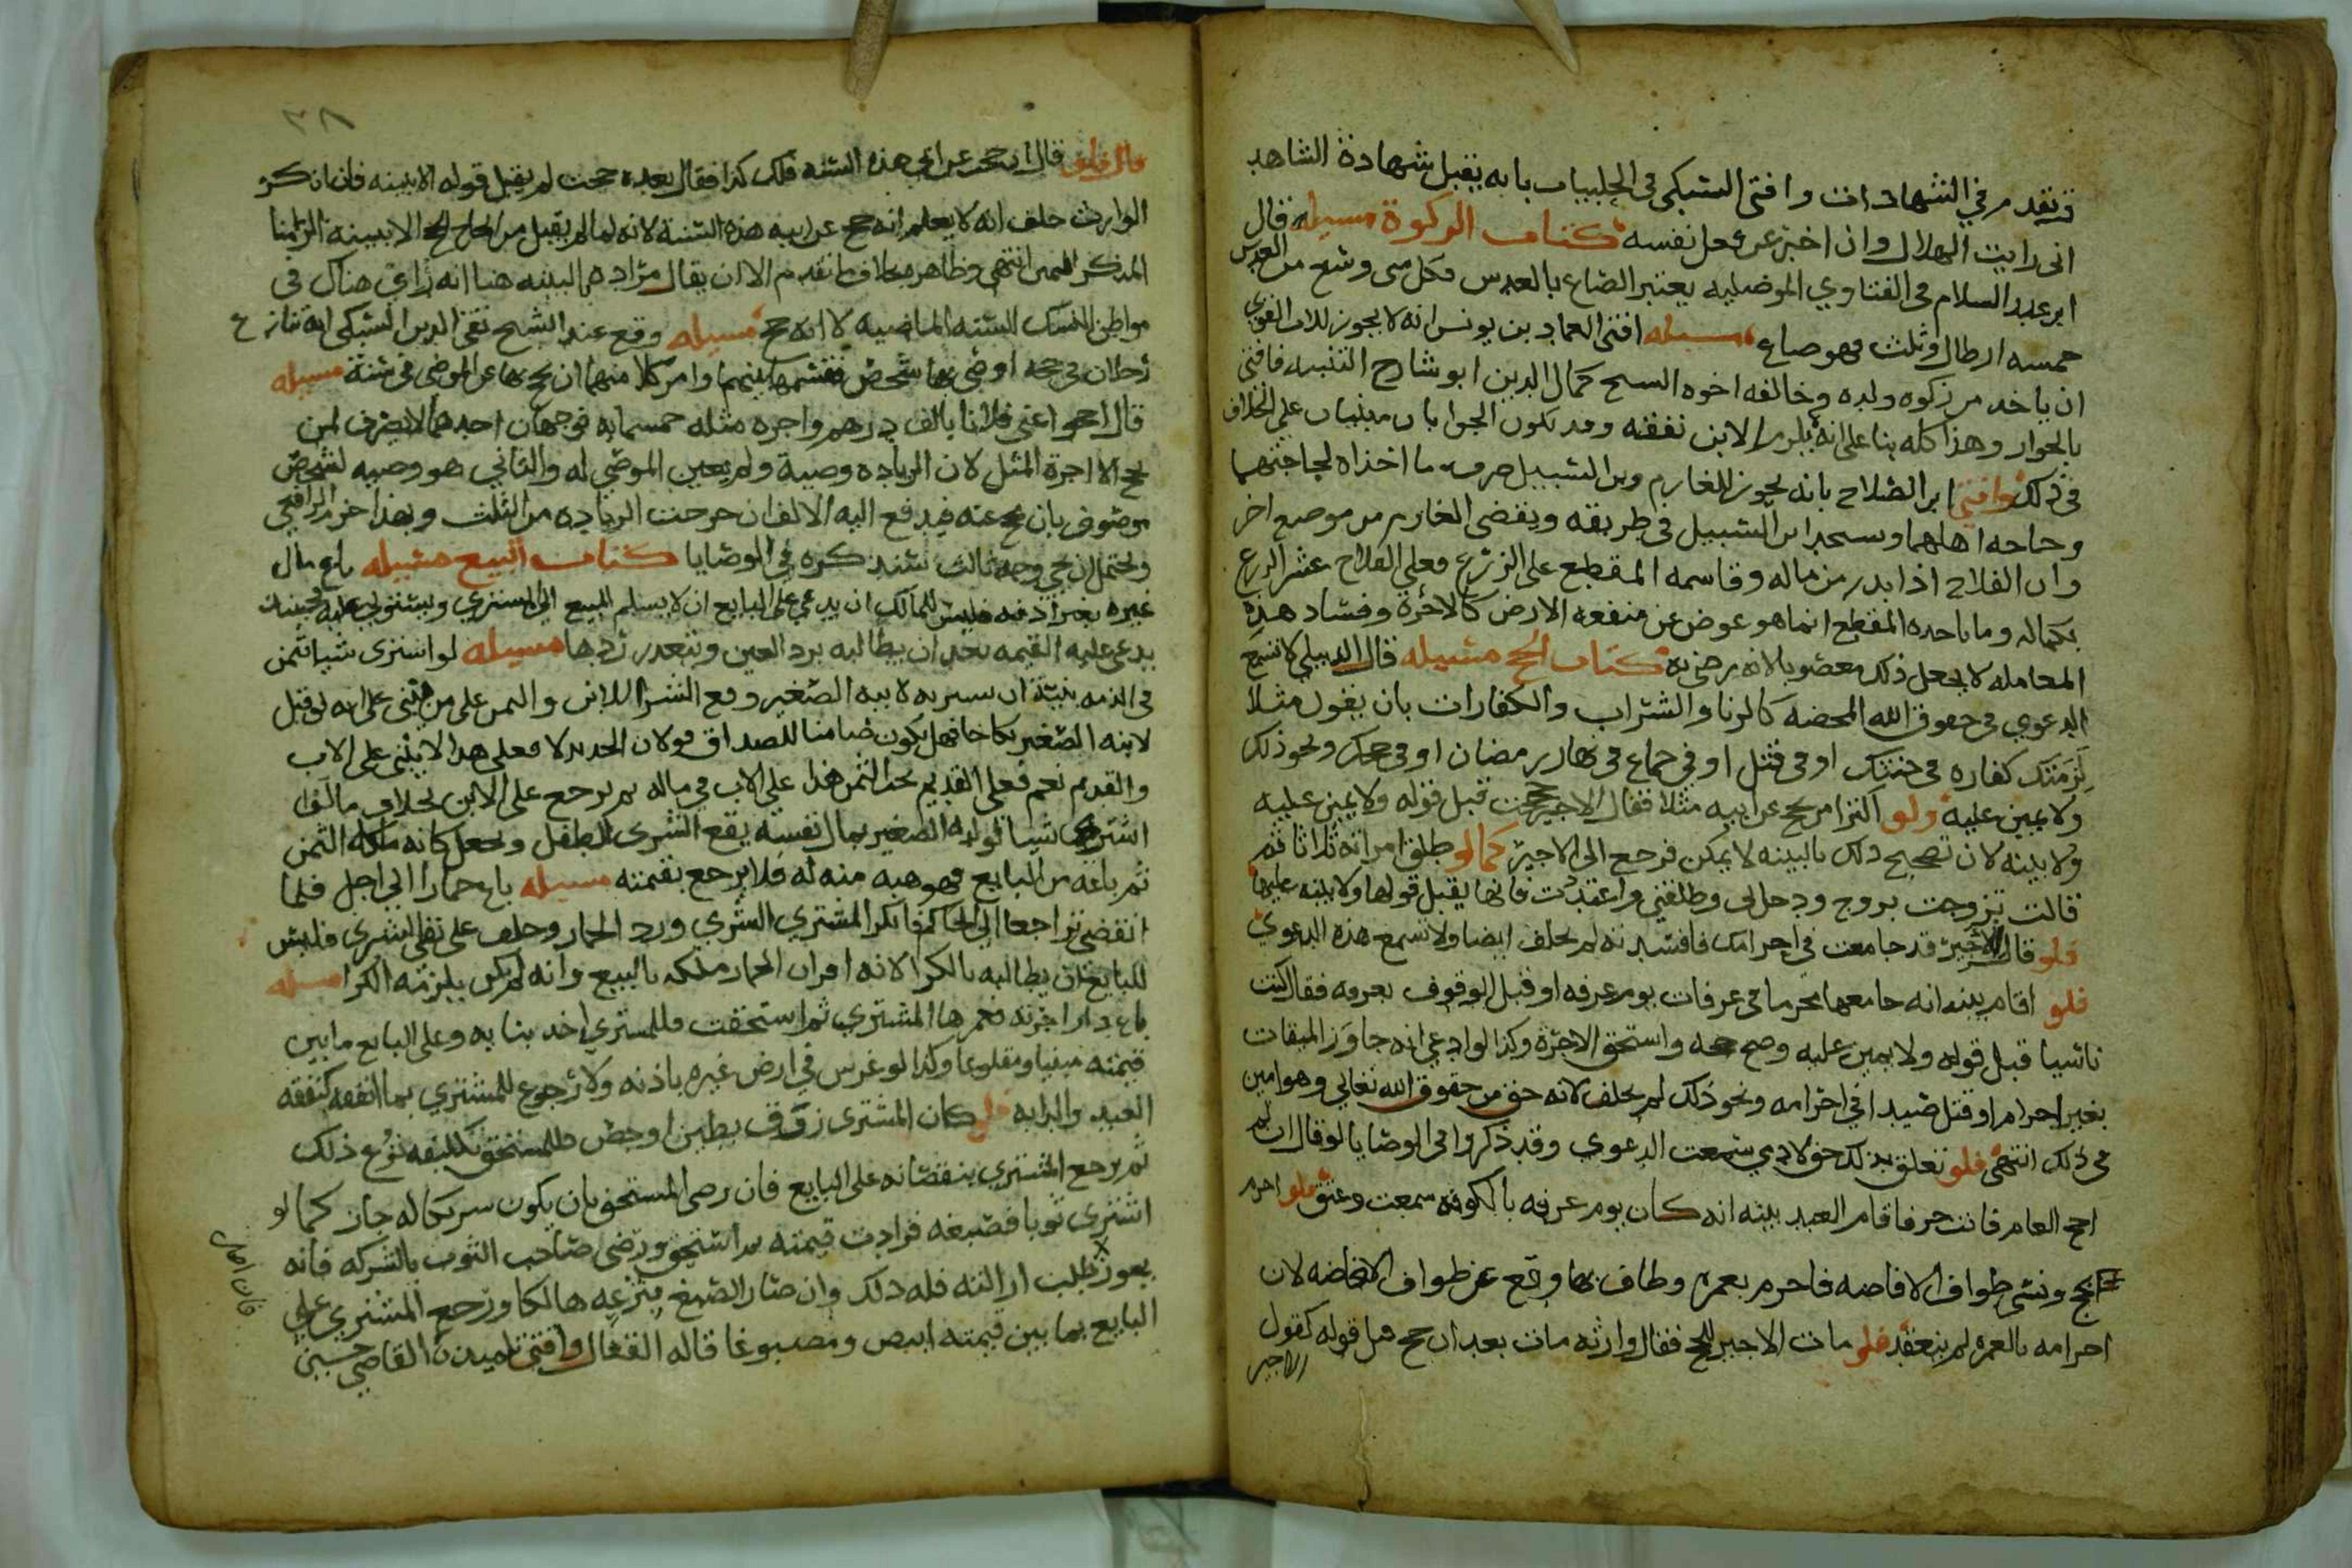 وتقدم في الشهادات وافتى السبكي في الحلبيات بانه يقبل شهادة الشاهد
اني رايت الهلال وان اخبر عن فعل نفسه كتاب الزكوة مسيله قال
ابن عبد السلام في الفتاوي الموصليه يعتبر الصاع بالعدس فكل شي وسع من العدس
خمسه ارطال وثلث فهو صاع مسيله افتى العماد بن يونس انه لا يجوز للاب القوي
ان ياخد من زكوه ولده وخالفه اخوه الشيخ كمال الدين ابو شارح التنبيه فافتى
بالجواز وهذا كله بنا على انه يلزم الابن نفقته وقد يكون الجوابان مبنيان على الخلاف
في ذلك وافتى ابن الصلاح بانه يجوز للغارم وبن السبيل صرف ما اخذاه لحاجتهما
وحاجه اهلهما وسحد ابن السبيل في طريقه ويقضي الغارم من موضع اخر
وان الفلاح اذا بدر من ماله وقاسمه المقطع على الزرع فعلى الفلاح عشر الزرع
بكماله وما ياحده المقطع انما هو عوض عن منفعه الارض كالاجرة وفساد هذه
المعامله لا يجعل ذلك مغصوبا لانه رضي به كتاب الحج مسيله قال الدبيلي لا تسمع
الدعوي في حقوق الله المحضه كالزنا والشراب والكفارات بان يقول مثلا
لزمتك كفاره في حنثك او في قتل او في جماع في نهار رمضان او في حجك ونحو ذلك
ولا يمين عليه ولو اكترا من يحج عن ابيه مثلا فقال الاجير حججت قبل قوله ولا يمين عليه
ولا بينه لان تصحيح ذلك بالبينه لا يمكن فرجع الى الاجير كما لو طلق امراته ثلاثا ثم
قالت تزوجت بزوج ودخل بي وطلقني واعتددت فانها يقبل قولها ولا بينه عليها
فلو قال للاجير قد جامعت في احرامك فافسدته لم يحلف ايضا ولا تسمع هذه الدعوي
فلو اقام بينه انه جامعها محرما في عرفات يوم عرفه او قبل الوقوف بعرفه فقال كنت
ناسيا قبل قوله ولا يمين عليه وصح حجه واستحق الاجرة وكذا لو ادعي انه جاوز الميقات
بغير احرام او قتل صيدا في احرامه ونحو ذلك لم يحلف لانه حق من حقوق الله تعالى وهو امين
في ذلك انتهى فلو تعلق بذلك حق لادمي سمعت الدعوي وقد ذكروا في الوصايا لو قال ان لم
احج العام فانت حر فاقام العبد بينه انه كان يوم عرفه بالكوفه سمعت وعتق فلو احرم
بالحج ونسي طواف الافاضه فاحرم بعمره وطاف بها وقع عن طواف الافاضه لان
احرامه بالعمره لم ينعقد فلو مات الاجير للحج فقال وارثه مات بعد ان حج قبل قوله كقول
الاجير
٣٨
قال ان حججت عن ابي هذه السنه فلك كذا فقال بعده حججت لم يقبل قوله الا ببينه فان انكر
الوارث حلف انه لا يعلم انه حج عن ابيه هذه السنة لانه لما لم يقبل من الحاج الحج الا ببينه الزمنا
المنكر اليمين انتهى وظاهره خلاف ما تقدم الا ان يقال مراده بالبينه هنا انه رآي هناك في
مواطن النسك السنه الماضيه لا انه حج مسيله وقع عند الشيخ تقي الدين السبكي انه تنازع
رجلان في حجه اوصى بها شخص فقسمها بينهما وامر كلا منهما ان يحج بها عن الموصي في سنة مسيله
قال احجوا عني فلانا بالف درهم واجره مثله خمسمايه فوجهان احدهما لا يصرف لمن
يحج الا اجرة المثل لان الزياده وصية ولم يعين الموصي له والثاني هو وصيه لشخص
موصوف بان يحج عنه فيدفع اليه الالف ان خرجت الزياده من الثلث وبهذا اخر الرافعي
ويحتمل ان يجي وجه ثالث سنذكره في الوصايا كتاب البيع مسيله باع مال
غيره بغير اذنه فليس للمالك ان يدعي على البايع ان لا يسلم المبيع الى المشتري ويستولي عليه فحينئذ
يدعي عليه القيمه بعد ان يطالبه برد العين ويتعذر ردها مسيله لو اشترى شيا بثمن
في الذمه بنيته ان يشتريه لابنه الصغير وقع الشرا للابن والثمن على من هي يبنى على انه لو قبل
لابنه الصغير نكاحا فهل يكون ضامنا للصداق قولان الجديد لا فعلى هذا لا يبنى على الاب
والقديم نعم فعلى القديم نحد الثمن هذا على الاب في ماله ثم يرجع على الابن بخلاف ما لو
اشترى شيا لولده الصغير بمال نفسه يقع الشرى للطفل ويجعل كانه ملكه الثمن
ثم باعه من البايع فهو هبه منه له فلا يرجع بقيمته مسيله باع حمارا الى اجل فلما
انقضى تراجعا الى الحاكم فانكر المشتري الشري ورد الحمار وحلف على نفي الشري فليس
للبايع ان يطالبه بالكرا لانه اقر ان الحمار ملكه بالبيع وانه لم يكن يلزمه الكرا مسيله
باع دارا خربه فعمرها المشتري ثم استحقت فللمشتري اخد بنايه وعلى البايع ما بين
قيمته مبنيا ومقلوعا وكذا لو غرس في ارض غيره باذنه ولا رجوع للمشتري بما انفقه كنفقه
العبد والدابه فلو كان المشتري زوق بطين او جص فللمستحق تكليفه نزع ذلك
ثم يرجع المشتري بنقصانه على البايع فان رضي المستحق بان يكون شريكا له جاز كما لو
اشترى ثوبا فصبغه فزادت قيمته ثم استحق ورضي صاحب الثوب بالشركه فانه
يجوز طلب ازالته فله ذلك وان صار الصبغ بنزعه هالكا ورجع المشتري على
البايع بما بين قيمته ابيض ومصبوغا قاله القفال وافتى تلميذه القاضي حسين